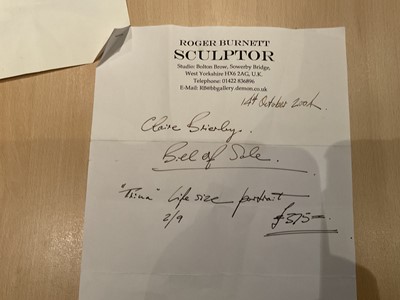 ROGER BURNETT
SCULPTOR
Studio: Bolton Brow, Sowerby Bridge,
West Yorkshire HX6 2AG, U.K.
Telephone: 01422 836896
E-Mail: RB@bbgallery.demon.co.uk
14th October 2004
Claire Brierley.
Bill of Sale.
"Trina" Life size portrait
2/9 £375—